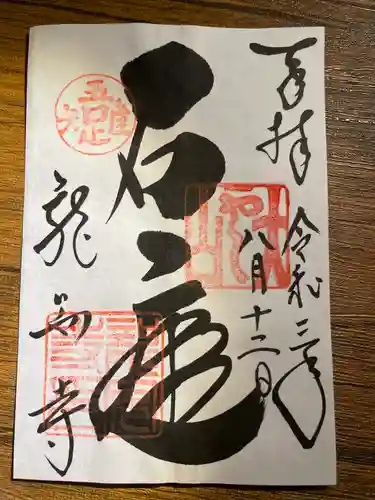 奉拝
令和三年
八月十二日
石庭
龍安寺
吾唯足知